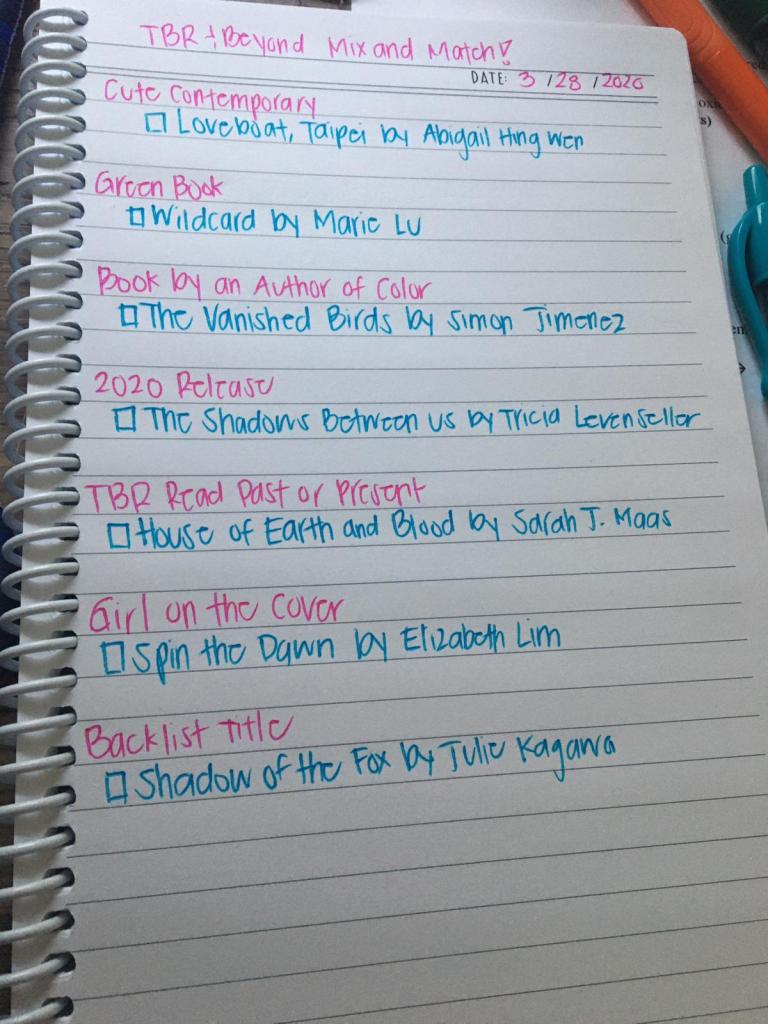 TBR + Beyond Mix and Match!
DATE: 3 / 28 / 2020
Cute Contemporary
Loveboat, Taipei by Abigail Hing Wen
Green Book
Wildcard by Marie Lu
Book by an Author of Color
The Vanished Birds by Simon Jimenez
2020 Release
The Shadows Between Us by Tricia Levenseller
TBR Read Past or Present
House of Earth and Blood by Sarah J. Maas
Girl on the Cover
Spin the Dawn by Elizabeth Lim
Backlist Title
Shadow of the Fox by Julie Kagawa